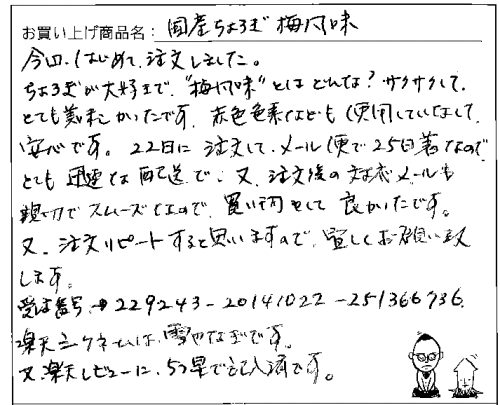 お買い上げ商品名: 国産ちょろぎ 梅風味
今回、はじめて、注文しました。
ちょろぎが大好きで、"梅風味"とはどんな?サクサクして、
とても美味しかったです。赤色色素なども使用していなくて、
安心です。22日に注文して、メール便で25日着なので
とても迅速な配送で、又、注文後の対応メールも
親切でスムーズなので、買い物をして良かったです。
又、注文リピートすると思いますので、宜しくお願い致
します。
受注番号→229243-20141022-251366736.
楽天ニックネームは、雪やなぎです。
又、楽天レビューに、5つ星で記入済です。